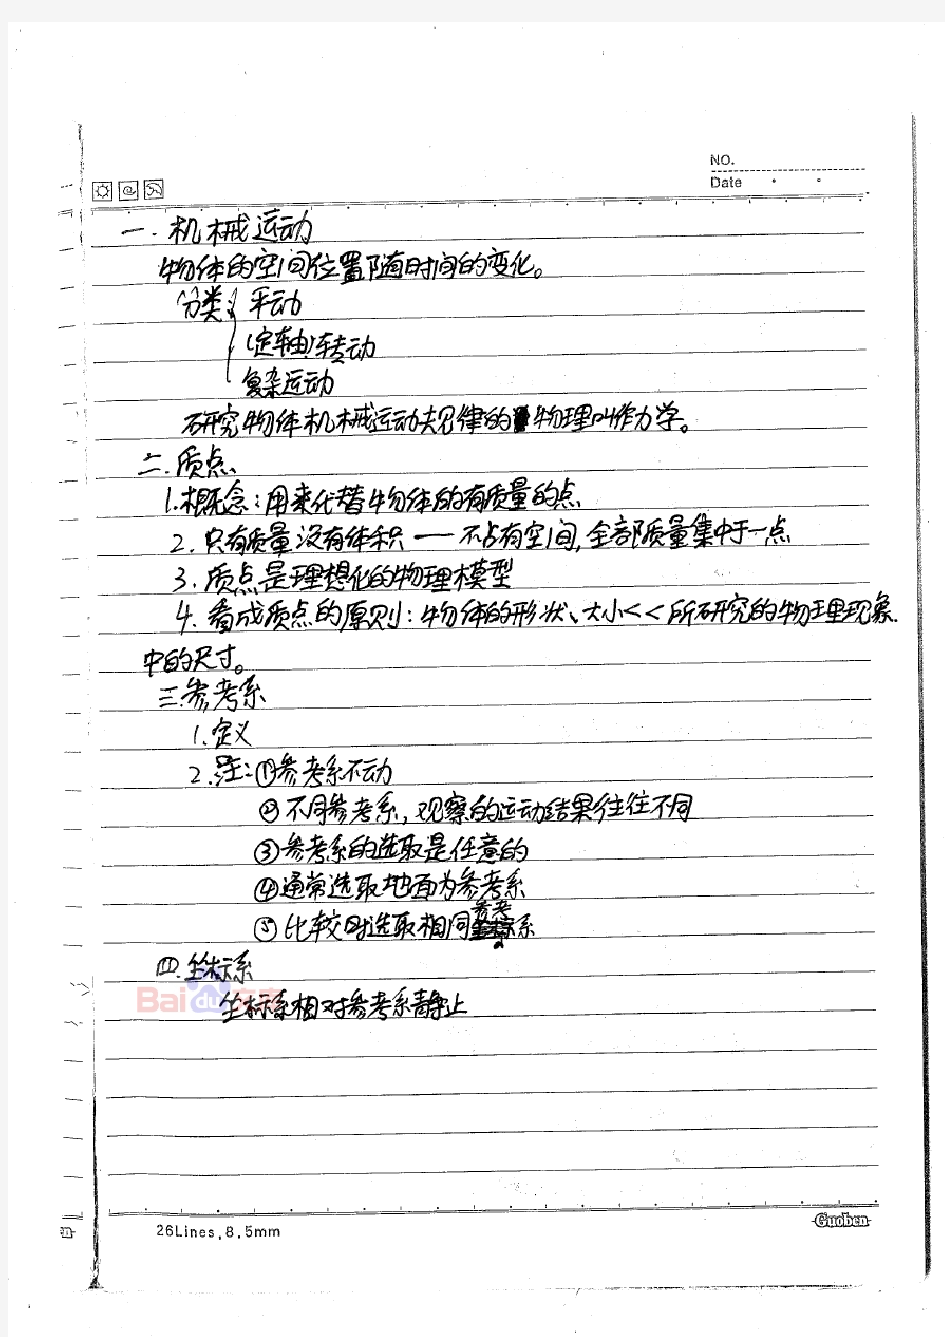 NO.
Date
一.机械运动
物体的空间位置随时间的变化。
分类 平动
(定轴)转动
复杂运动
研究物体机械运动规律的物理叫作力学。
二.质点
1.概念:用来代替物体的有质量的点
2.只有质量没有体积——不占有空间,全部质量集中于一点
3.质点是理想化的物理模型
4.看成质点的原则:物体的形状、大小<<所研究的物理现象
中的尺寸。
三.参考系
1.定义
2.注:①参考系不动
②不同参考系,观察的运动结果往往不同
③参考系的选取是任意的
④通常选取地面为参考系
⑤比较时选取相同参考系
四.坐标系
坐标系相对参考系静止
Bai du
26Lines,8,5mm
Guoben